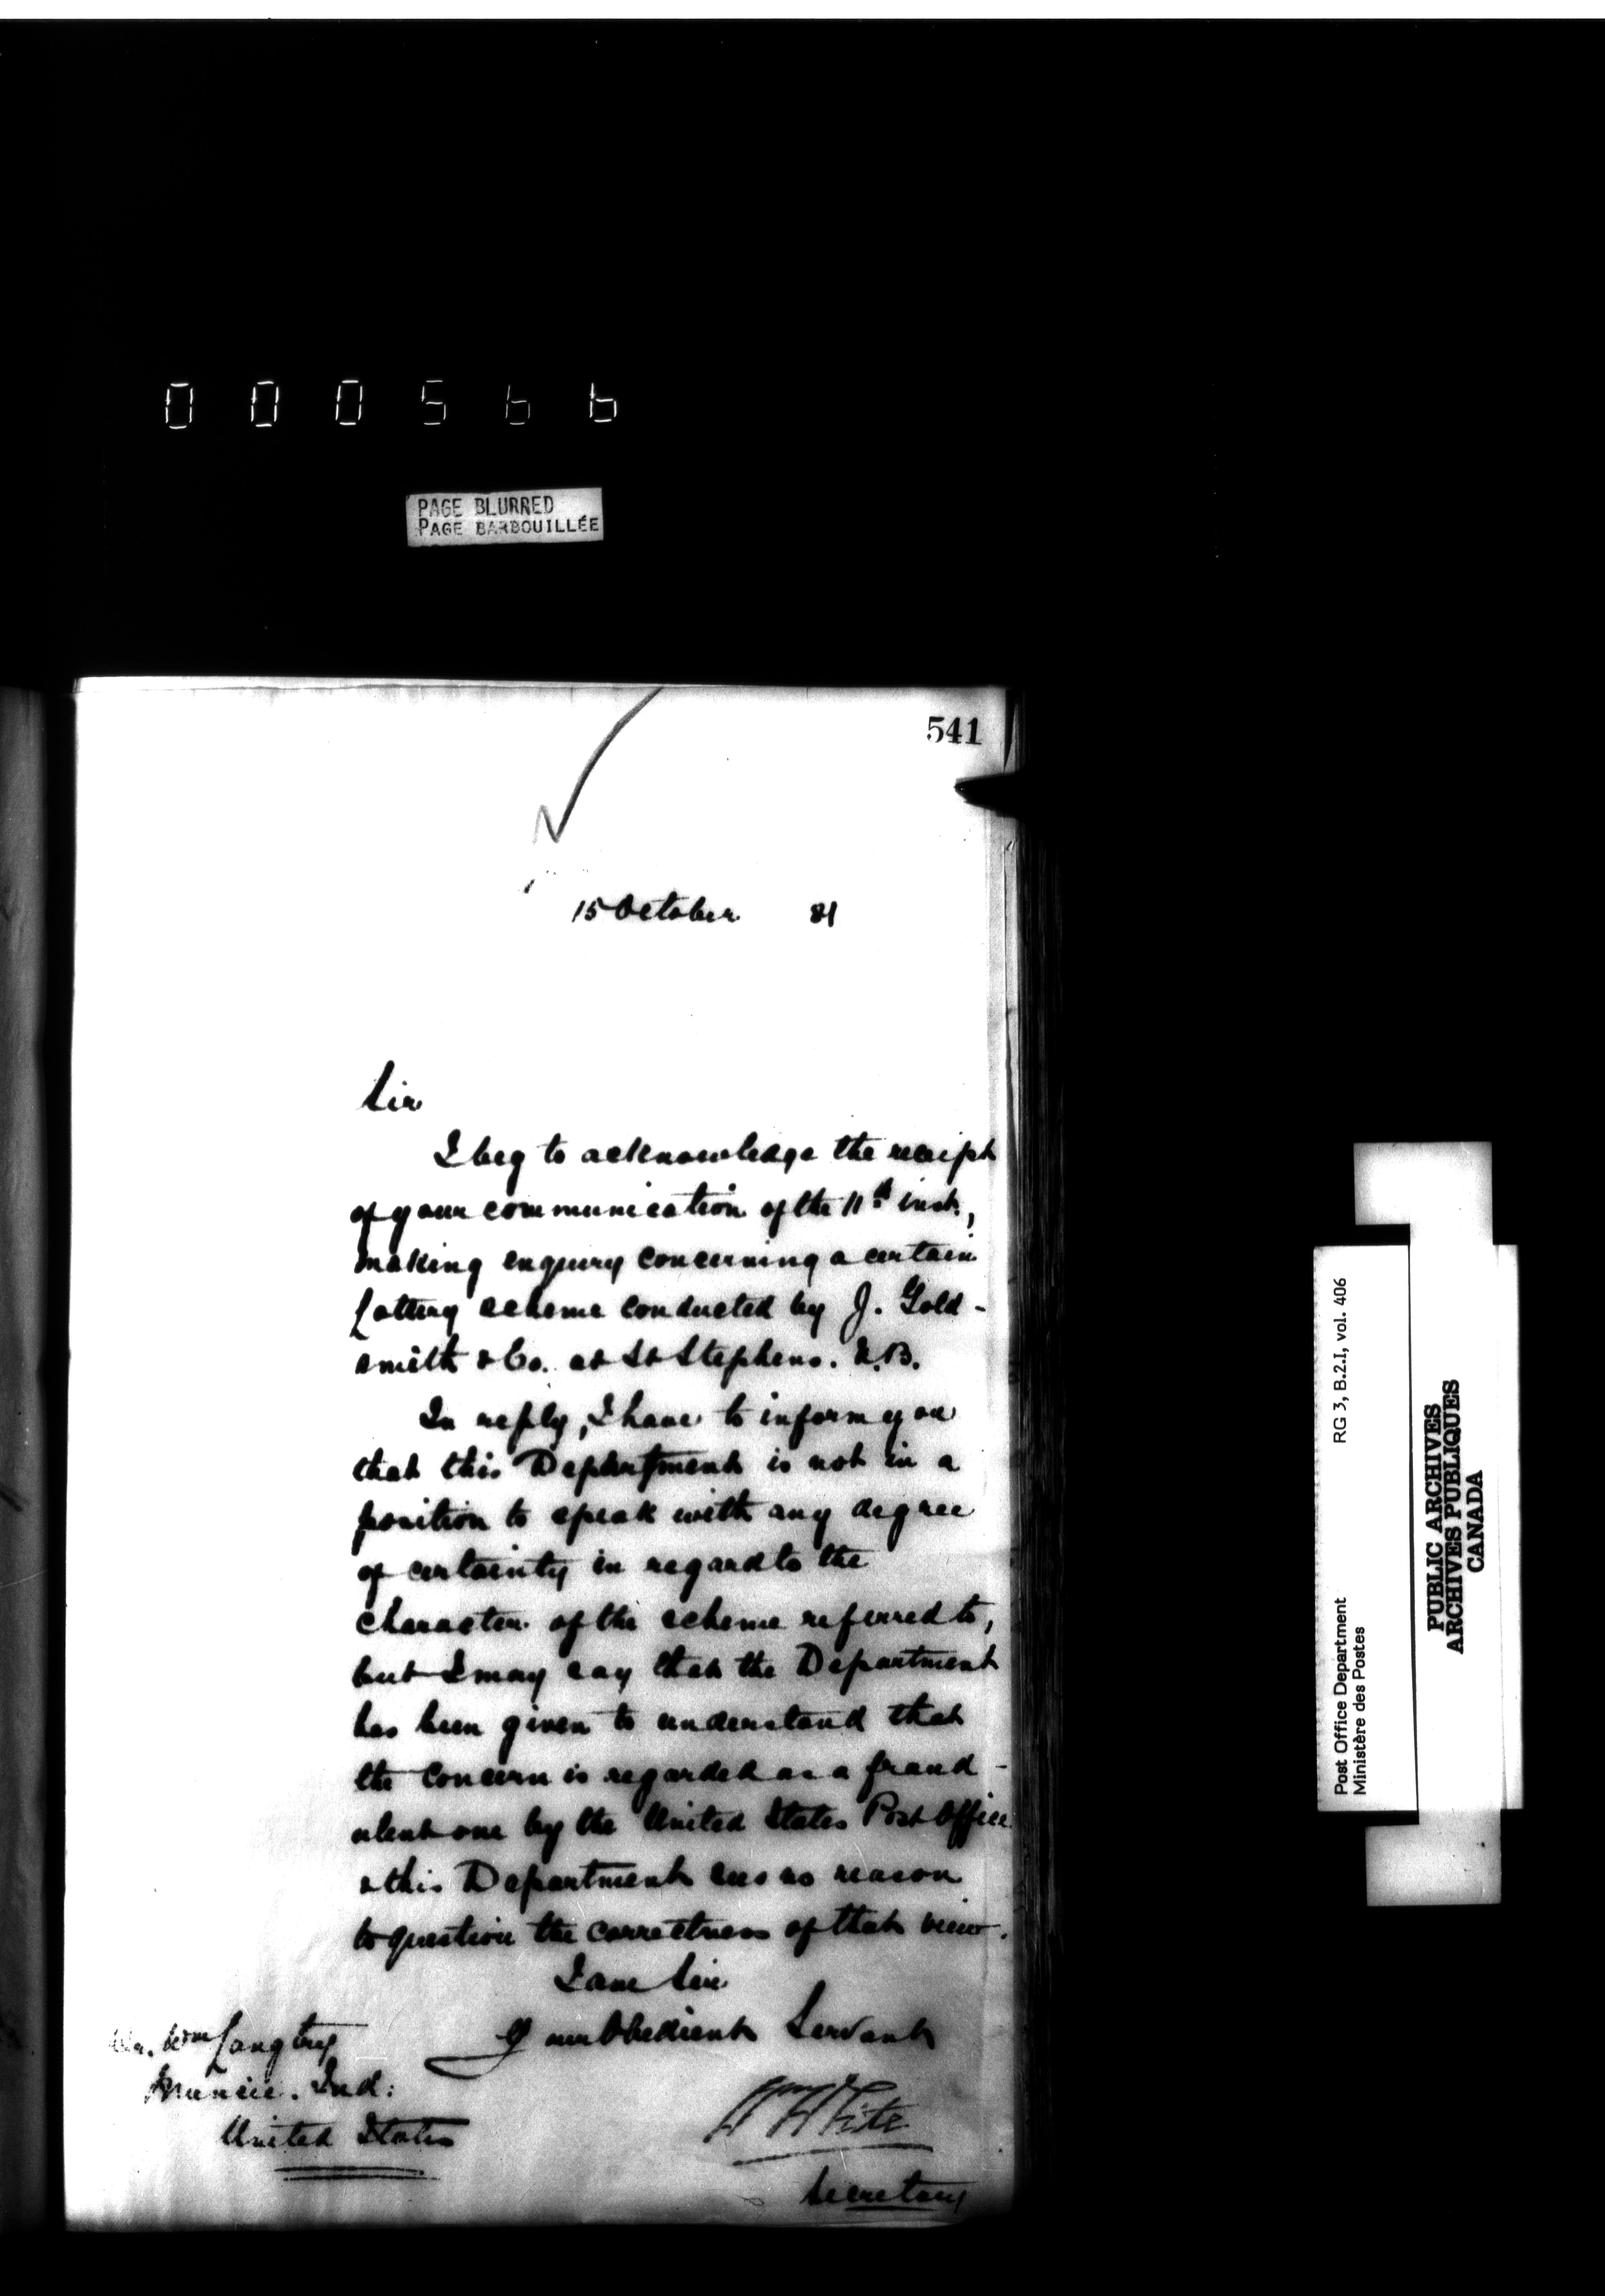 000566
PAGE BLURRED
PAGE BARBOUILLÉE
541
15 October 81
Sir
I beg to acknowledge the receipt
of your communication of the 11th inst.,
making enquiry concerning a certain
Lottery scheme conducted by J. Gold-
smith & Co. at St Stephens. N.B.
In reply, I have to inform you
that this Department is not in a
position to speak with any degree
of certainty in regard to the
character of the scheme referred to,
but I may say that the Department
has been given to understand that
the concern is regarded as a fraud-
ulent one by the United States Post Office
& this Department sees no reason
to question the correctness of that view.
I am Sir
Your Obedient Servant
Wm White
Secretary
Mr. Wm Langtry
Muncie. Ind:
United States
Post Office Department
Ministère des Postes
RG 3, B.2.I, vol. 406
PUBLIC ARCHIVES
ARCHIVES PUBLIQUES
CANADA